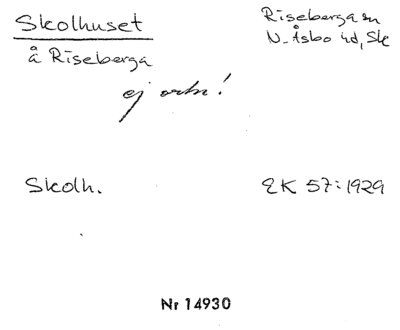 Skolhuset
å Riseberga
Riseberga sn
N. Åsbo hd, Sk
ej ortn!
Skolh.
EK 57:1929
Nr 14930